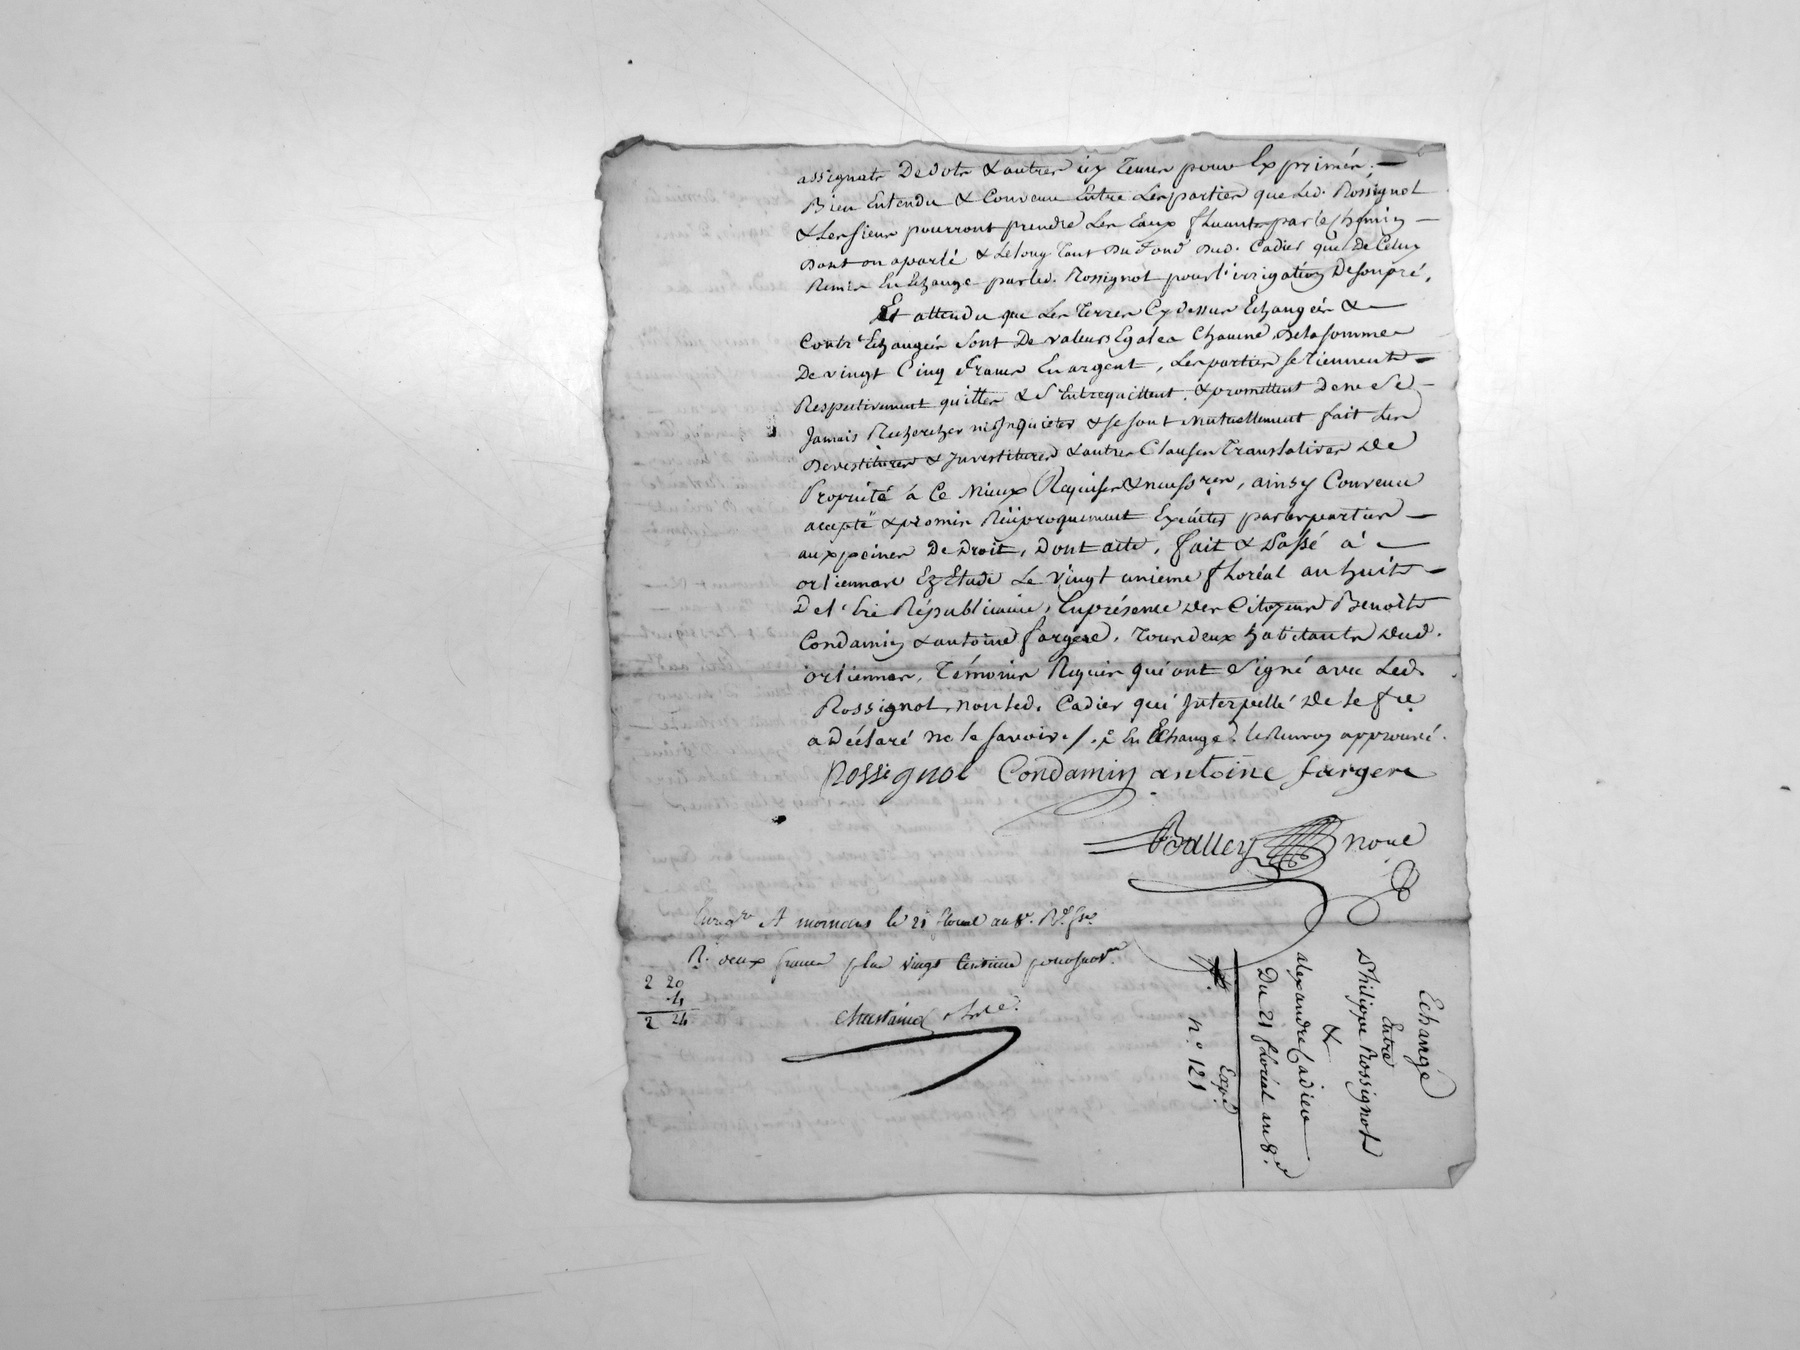 assignats De dots & autres icy Tenus pour Exprimés. —
Bien Entendu & Convenu Entre Les parties que Led. Rossignol
& Les siens pourront prendre Les Eaux fluantes par le Chemin —
Dont on a parlé & Le long Tant Du fond Dud. Cadier que De Celuy
Remis En Echange par Led. Rossignol pour l'irrigation De son pré.
Et attendu que Les Terres Cy dessus Echangées & —
Contr'Echangées sont De valeurs Egales Chacune De la somme
De vingt Cinq francs En argent, Les parties se tiennent —
Respectivement quittes & s'Entrequittent, & promettent De ne se —
Jamais Rechercher ni Inquieter & se sont Mutuellement fait Les
Devestitures & Investitures & autres Clauses Translatives De
Propriété à Ce Mieux Requises & necess.res, ainsy Convenu
accepté & promis Réciproquement Exécuter par les parties —
aux peines De Droit, Dont acte, fait & Passé à —
orliennas Ez Etude Le vingt unieme floréal an huit —
De l'Ere Républicaine, En présence Des Citoyens Benoit
Condamin & antoine fargere, Tous deux habitants Dud.
orliennas, Témoins Requis qui ont signé avec Led.
Rossignol non Led. Cadier qui Interpellé De le f.re
a Déclaré ne le savoir ./. En Echange. le Renvoy approuvé.
Rossignol Condamin antoine fargere
Balley noue
Enreg.re A mornans le 21 floreal an 8.e
R. deux francs plus vingt Centimes
2 20
2 24
Echange
Entre
Philippe Rossignol
&
alexandre Cadier
Du 21 floréal an 8.e
Exp.d
n.o 121